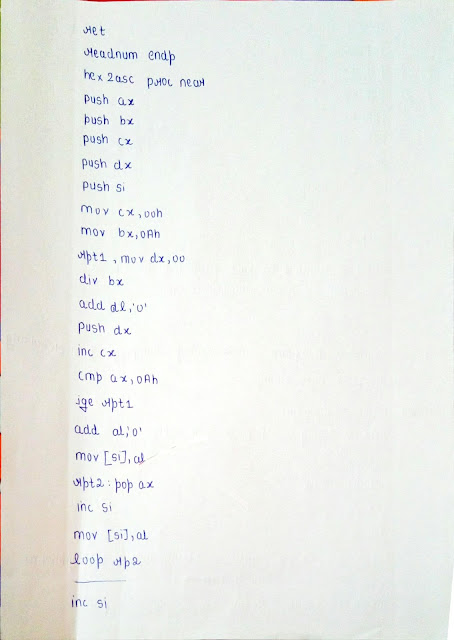 ret
readnum endp
hex2asc proc near
push ax
push bx
push cx
push dx
push si
mov cx,00h
mov bx,0Ah
rpt1, mov dx,00
div bx
add dl,'0'
push dx
inc cx
cmp ax,0Ah
jge rpt1
add al,'0'
mov [si],al
rpt2: pop ax
inc si
mov [si],al
loop rp2
inc si